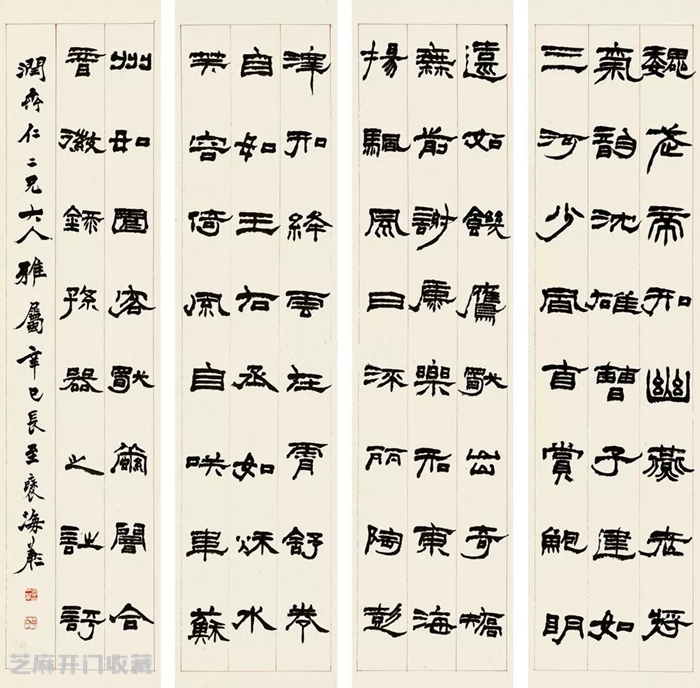 魏武帝如幽燕老将
氣韵沈雄曹子建如
三河少自賞鮑明
遠如饑鷹獨出奇矯
無前謝康樂如東海
揚颿風日流丽陶彭
澤如絳雲在霄舒卷
自如王右丞如秋水
芙容倚風自咲韋蘇
州如園客獨繭闇合
音徽錄孫器之詩評
潤齊仁二兄大人雅屬辛巳長至海
芝麻开门收藏